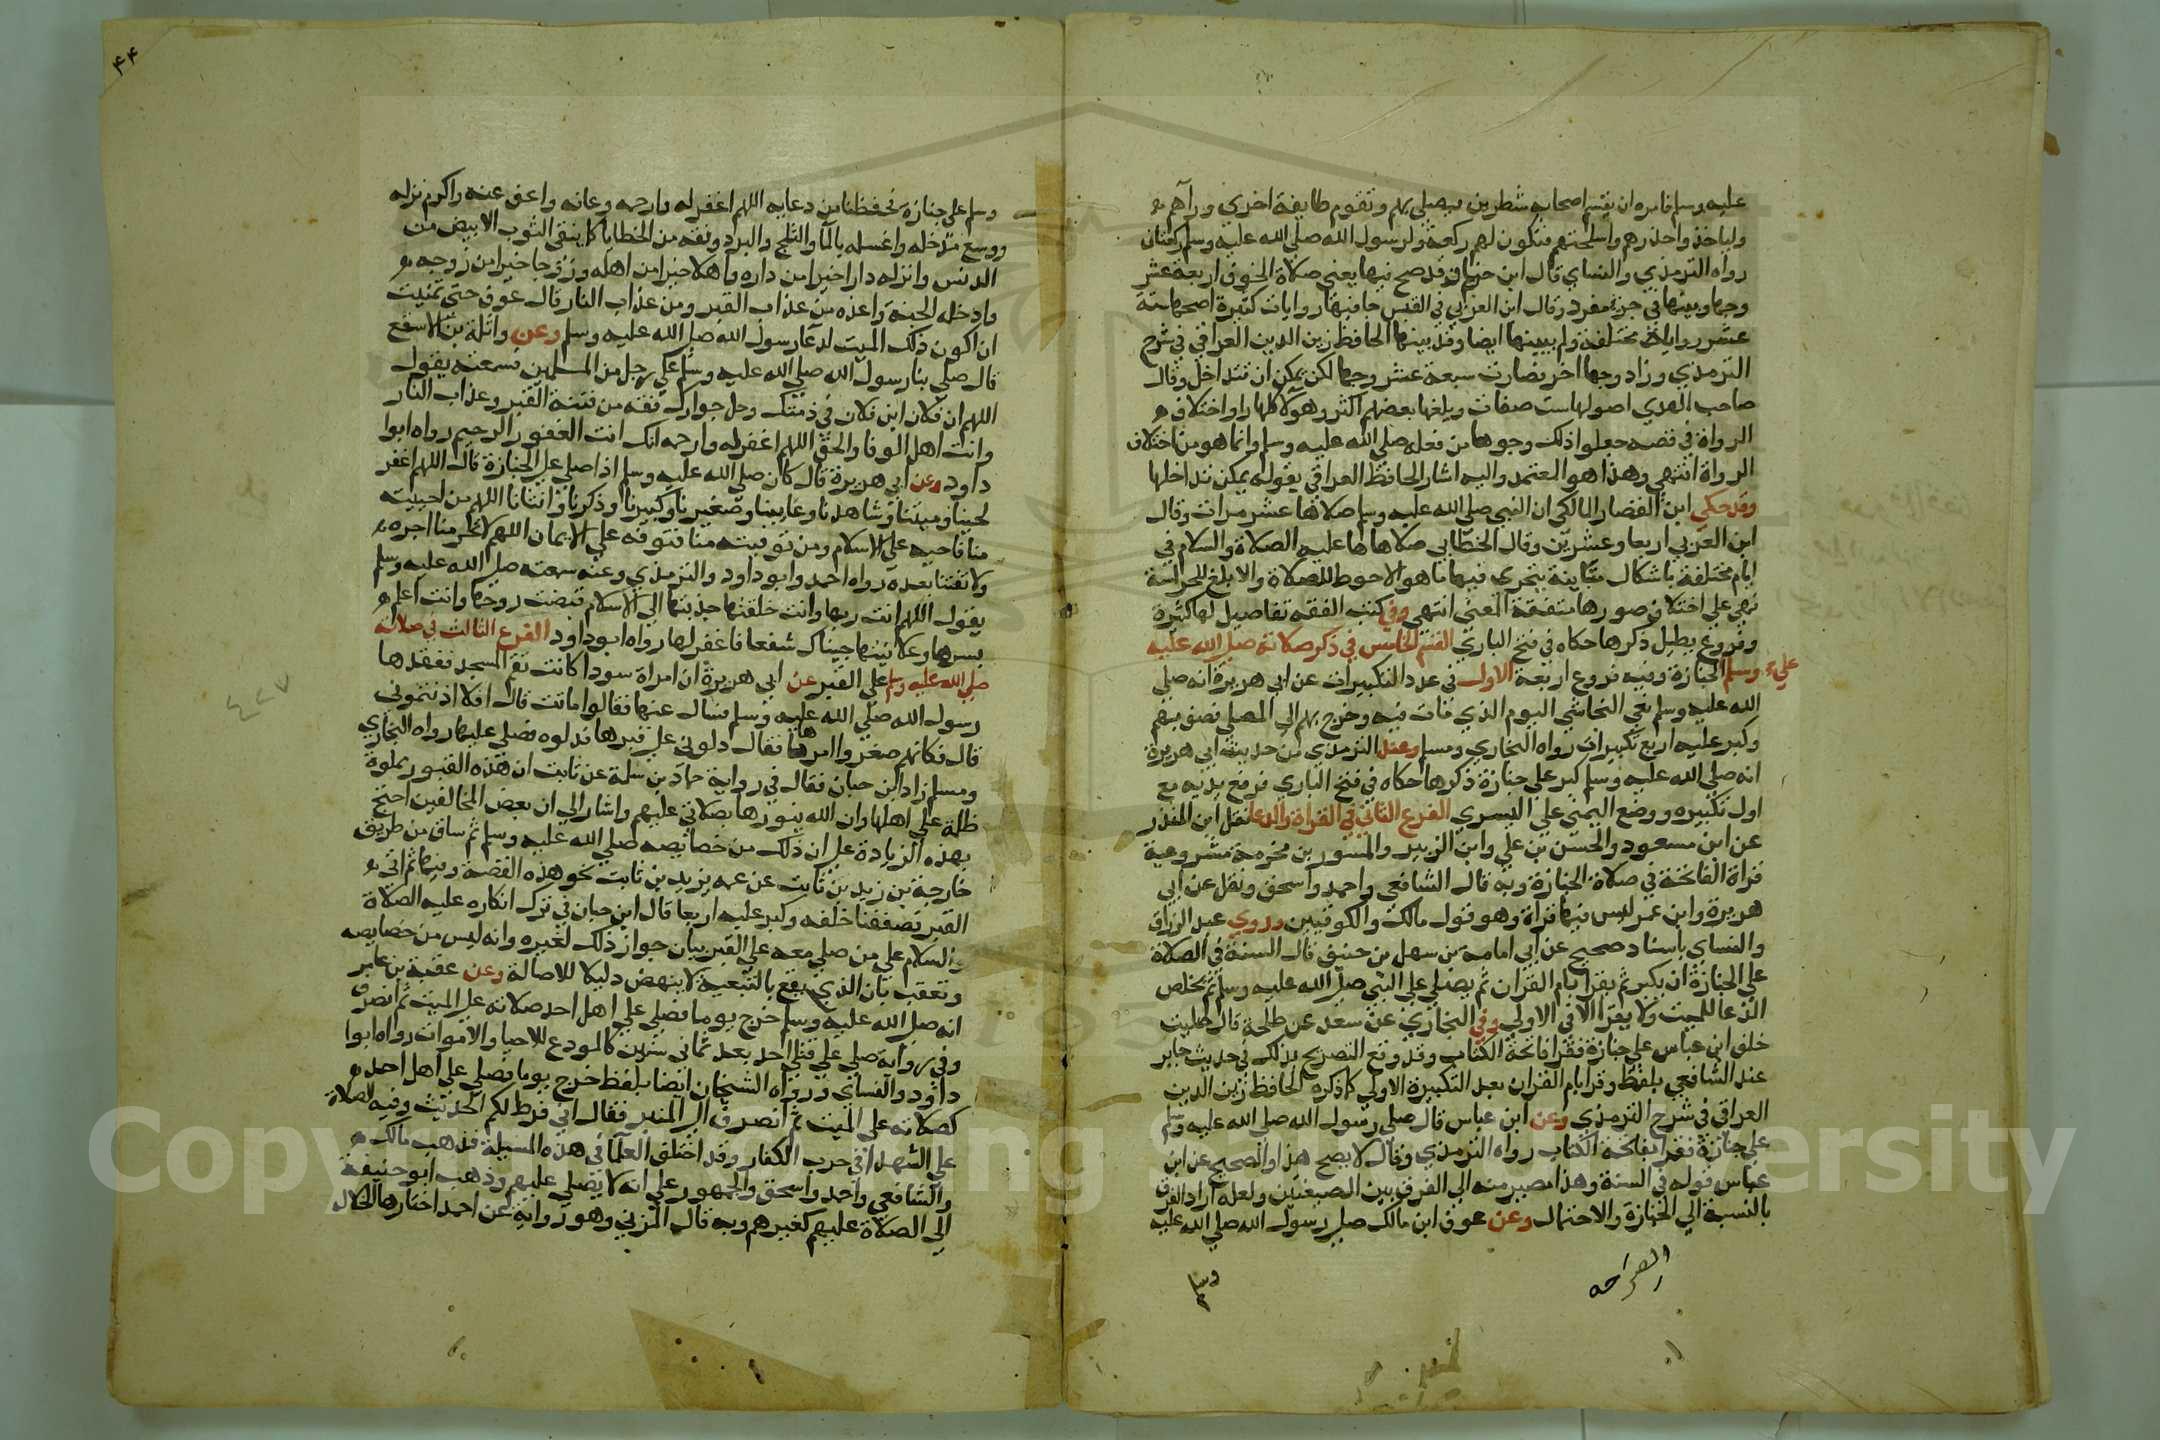 عليه وسلم فامره ان يقسم اصحابه شطرين فيصلي بهم وتقوم طايفة اخري وراهم
ولياخذوا حذرهم واسلحتهم فتكون لهم ركعة ولرسول الله صلي الله عليه وسلم ركعتان
رواه الترمذي والنساي قال ابن حزم قد صح فيها يعني صلاة الخوف اربعة عشر
وجها وبينها في جزء مفرد وقال ابن العربي في القبس جا فيها روايات كثيرة اصحها ستة
عشر رواية مختلفة ولم يبينها ايضا وقد بينها الحافظ زين الدين العراقي في شرح
الترمذي وزاد وجها اخر فصارت سبعة عشر وجها لكن يمكن ان تتداخل وقال
صاحب الهدي اصولها ست صفات وبلغها بعضهم اكثر وهولا كلما راوا اختلاف
الرواة في قصة جعلوا ذلك وجوها من فعله صلي الله عليه وسلم وانما هو من اختلاف
الرواة انتهي وهذا هو المعتمد واليه اشار الحافظ العراقي بقوله يمكن تداخلها
وقد حكي ابن القصار المالكي ان النبي صلي الله عليه وسلم صلاها عشر مرات وقال
ابن العربي اربعا وعشرين وقال الخطابي صلاها عليه الصلاة والسلام في
ايام مختلفة باشكال متباينة يتحري فيها ما هو الاحوط للصلاة والابلغ للحراسة
فهي علي اختلاف صورها متفقة المعني انتهي وفي كتب الفقه تفاصيل لها كثيرة
وفروع يطيل ذكرها حكاه في فتح الباري القسم الخامس في ذكر صلاته صلي الله عليه
وسلم علي الجنازة وفيه فروع اربعة الاول في عدد التكبيرات عن ابي هريرة انه صلي
الله عليه وسلم نعي النجاشي اليوم الذي مات فيه وخرج بهم الي المصلي فصف بهم
وكبر عليه اربع تكبيرات رواه البخاري ومسلم وعند الترمذي من حديث ابي هريرة
انه صلي الله عليه وسلم كبر علي جنازة ذكرها حكاه في فتح الباري فرفع يديه مع
اول تكبيره ووضع اليمني علي اليسري الفرع الثاني في القراة والدعا نقل ابن المنذر
عن ابن مسعود والحسن بن علي وابن الزبير والمسور بن مخرمة مشروعية
قراة الفاتحة في صلاة الجنازة وبه قال الشافعي واحمد واسحق ونقل عن ابي
هريرة وابن عمر ليس فيها قراة وهو قول مالك والكوفيين وروي عبد الرزاق
والنساي باسناد صحيح عن ابي امامة بن سهل بن حنيف قال السنة في الصلاة
علي الجنازة ان يكبر ثم يقرا بام القران ثم يصلي علي النبي صلي الله عليه وسلم ثم يخلص
الدعا للميت ولا يقرا الا في الاولي وفي البخاري عن سعد عن طلحة قال صليت
خلف ابن عباس علي جنازة فقرا فاتحة الكتاب وقد وقع التصريح بذلك في حديث جابر
عند الشافعي بلفظ وقرا بام القران بعد التكبيرة الاولي كما ذكره الحافظ زين الدين
العراقي في شرح الترمذي وعن ابن عباس قال صلي رسول الله صلي الله عليه وسلم
علي جنازة فقرا بفاتحة الكتاب رواه الترمذي وقال لا يصح هذا والصحيح عن ابن
عباس قوله في السنة وهذا مصير منه الي الفرق بين الصيغتين ولعله اراد الفرق
بالنسبة الي الجنازة والاحتمال وعن عوف ابن مالك صلي رسول الله صلي الله عليه
وسلم
٤٤
وسلم علي جنازة فحفظنا من دعايه اللهم اغفر له وارحمه وعافه واعف عنه واكرم نزله
ووسع مدخله واغسله بالما والثلج والبرد ونقه من الخطايا كما ينقي الثوب الابيض من
الدنس وانزله دارا خيرا من داره واهلا خيرا من اهله وزوجا خيرا من زوجه
وادخله الجنة واعذه من عذاب القبر ومن عذاب النار قال عوف حتي تمنيت
ان اكون ذلك الميت لدعا رسول الله صلي الله عليه وسلم وعن واثلة بن الاسقع
قال صلي بنا رسول الله صلي الله عليه وسلم علي رجل من المسلمين فسمعته يقول
اللهم ان فلان ابن فلان في ذمتك وحل جوارك فقه من فتنة القبر وعذاب النار
وانت اهل الوفا والحق اللهم اغفر له وارحمه انك انت الغفور الرحيم رواه ابوا
داود وعن ابي هريرة قال كان صلي الله عليه وسلم اذا صلي علي الجنازة قال اللهم اغفر
لحينا وميتنا وشاهدنا وغايبنا وصغيرنا وكبيرنا وذكرنا وانثانا اللهم من احييته
منا فاحيه علي الاسلام ومن توفيته منا فتوفه علي الايمان اللهم لا تحرمنا اجره
ولا تفتنا بعده رواه احمد وابو داود والترمذي وعنه سمعته صلي الله عليه وسلم
يقول اللهم انت ربها وانت خلقتها وهديتها الي الاسلام قبضت روحها وانت اعلم
بسرها وعلانيتها جيناك شفعا فاغفر لها رواه ابو داود الفرع الثالث في صلاته
صلي الله عليه وسلم علي القبر عن ابي هريرة ان امراة سودا كانت تقم المسجد ففقدها
رسول الله صلي الله عليه وسلم فسال عنها فقالوا ماتت قال افلا اذنتموني
قال فكانهم صغروا امرها فقال دلوني علي قبرها فدلوه فصلي عليها رواه البخاري
ومسلم زاد ابن حبان فقال في رواية حماد بن سلمة عن ثابت ان هذه القبور مملوة
ظلمة علي اهلها وان الله ينورها بصلاتي عليهم واشار الي ان بعض المخالفين احتج
بهذه الزيادة علي ان ذلك من خصايصه صلي الله عليه وسلم ثم ساق من طريق
خارجة بن زيد بن ثابت عن عمه يزيد بن ثابت نحو هذه القصة وفيها ثم اتي
القبر فصففنا خلفه وكبر عليه اربعا قال ابن حبان في ترك انكاره عليه الصلاة
والسلام علي من صلي معه علي القبر بيان جواز ذلك لغيره وانه ليس من خصايصه
وتعقب بان الذي يقع بالتبعية لا ينهض دليلا للاصالة وعن عقبة بن عامر
انه صلي الله عليه وسلم خرج يوما فصلي علي اهل احد صلاته علي الميت ثم انصرف
وفي رواية صلي علي قتلي احد بعد ثماني سنين كالمودع للاحيا والاموات رواه ابوا
داود والنساي ورواه الشيخان ايضا بلفظ خرج يوما فصلي علي اهل احد
كصلاته علي الميت ثم انصرف الي المنبر فقال اني فرط لكم الحديث وفيه الصلاة
علي الشهدا في حرب الكفار وقد اختلف العلما في هذه المسيلة فذهب مالك
والشافعي واحمد واسحق والجمهور علي انه لا يصلي عليهم وذهب ابو حنيفة
الي الصلاة عليهم كغيرهم وبه قال المزني وهو رواية عن احمد اختارها الخلال
Copyright © King Saud University